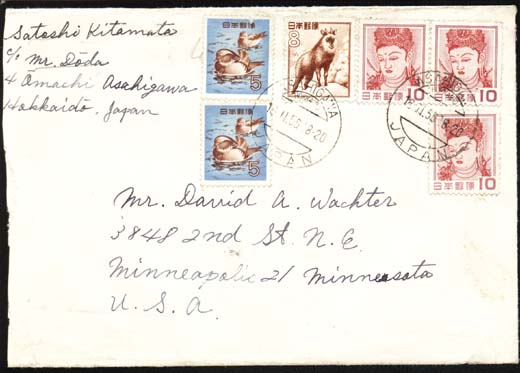 Satoshi Kitamata
c/o Mr. Dōda
4 Omachi Asahigawa
Hokkaido, Japan
日本郵便 5
日本郵便 8
日本郵便 10
日本郵便 10
日本郵便 5
日本郵便 10
JAPAN
JAPAN
Mr. David A. Wachter
3848 2nd St. N.E.
Minneapolis 21 Minnesota
U.S.A.